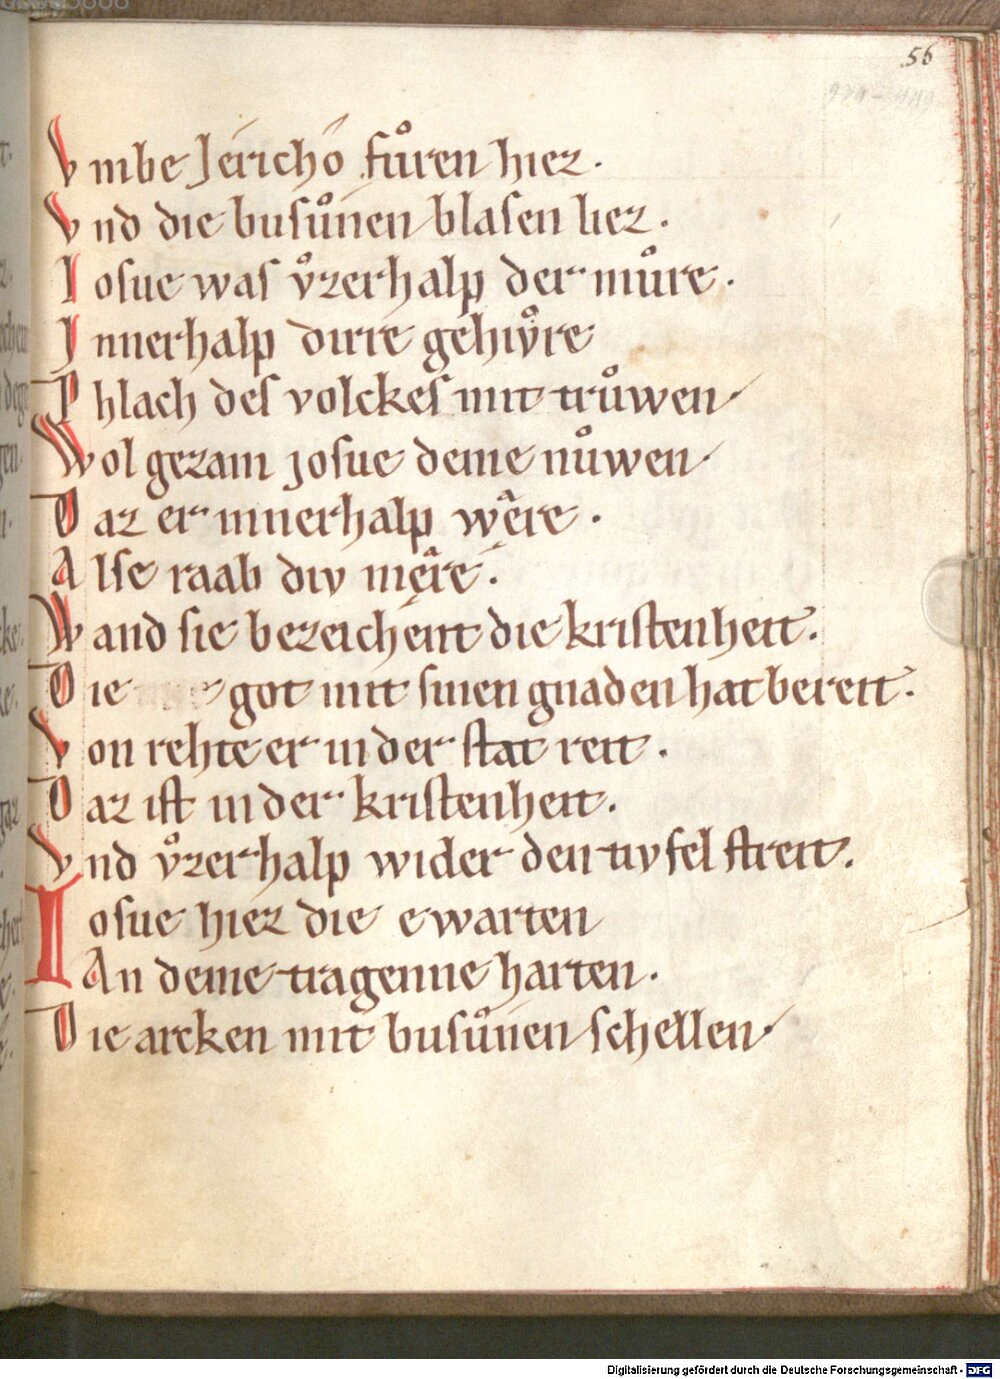 56
Vmbe Jericho fuͦren hiez.
Vnd die busuͦnen blasen liez.
Iosue was vͦzerhalp der muͦre.
Innerhalp dirre gehivͦre
Phlach des volckes mit truͦwen
Wol gezam josue deme nuͦwen
Daz er innerhalp wêre.
Alse raab div mêre.
Wand sie bezeichent die kristenheit.
Die got mit sinen gnaden hat bereit.
Von rehte er in der stat reit.
Daz ist in der kristenheit.
Vnd vͦzerhalp wider den tivfel streit.
Iosue hiez die ewarten
An deme tragenne harten.
Die arcken mit busuͦnen schellen
Digitalisierung gefördert durch die Deutsche Forschungsgemeinschaft - DFG